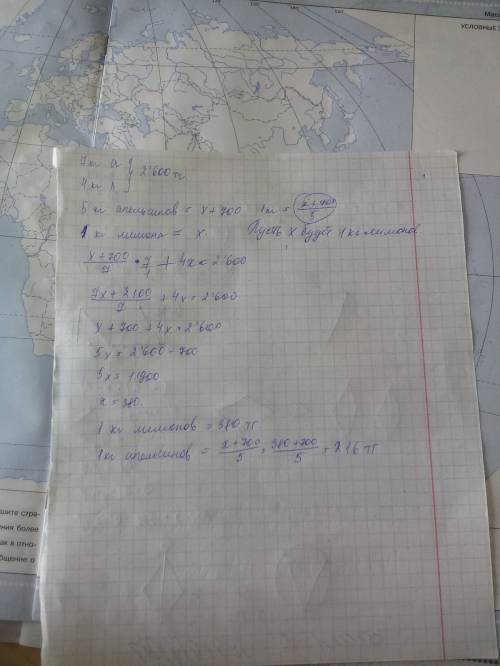 Мас
УСЛОВНЫЕ
7 кг а } 2'600 тг
4 кг л
5 кг апельсинов = х+700 1 кг = х+700/5
1 кг лимона = х. Пусть х будет 1 кг лимонов
х+700/7 • 7/1 + 4х = 2'600
7х+2100/7 + 4х = 2'600
х+700+4х=2'600
5х = 2'600-700
5х = 1900
х = 380.
1 кг лимонов = 380 тг
1 кг апельсинов = х+700/5 = 380+700/5 = 216 тг
шите стра-
ения более
ак в отно-
общение о